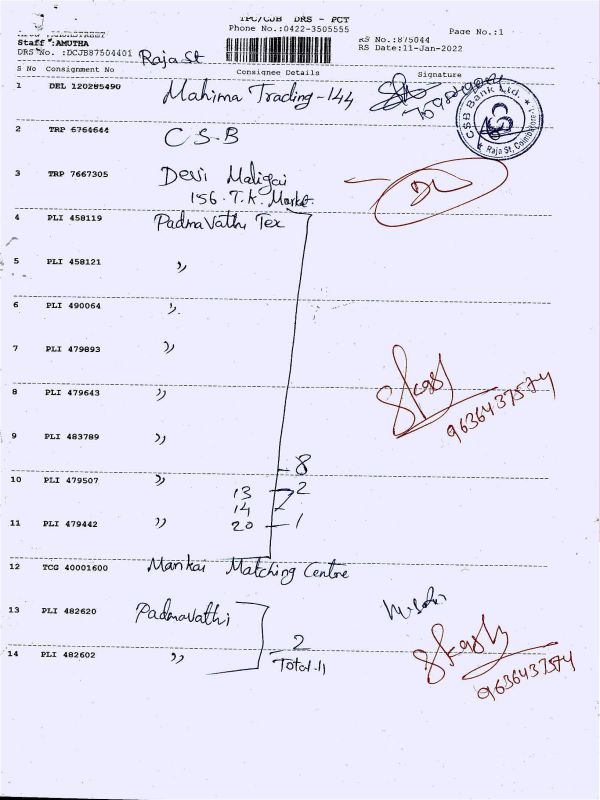 TPC/CJB DRS - PCT
Phone No.:0422-3505555
Page No.:1
Staff :AMUTHA
RS No.:875044
DRS No. :DCJB87504401
Raja St
RS Date:11-Jan-2022
S No Consignment No Consignee Details Signature
1 DEL 120285490 Mahima Trading - 144
CSB Bank Ltd.
Raja St, Coimbatore-1
2 TRP 6764644 C S B
3 TRP 7667305 Devi Maligai
156. T.K. Market.
4 PLI 458119 Padmavathi Tex
5 PLI 458121 ,,
6 PLI 490064 ,,
7 PLI 479893 ,,
8 PLI 479643 ,,
9636437574
9 PLI 483789 ,,
8
10 PLI 479507 ,,
13 2
14
11 PLI 479442 ,, 20 - 1
12 TCG 40001600 Mankai Matching Centre
13 PLI 482620 Padmavathi
2
14 PLI 482602 ,, Total-11
9636437574